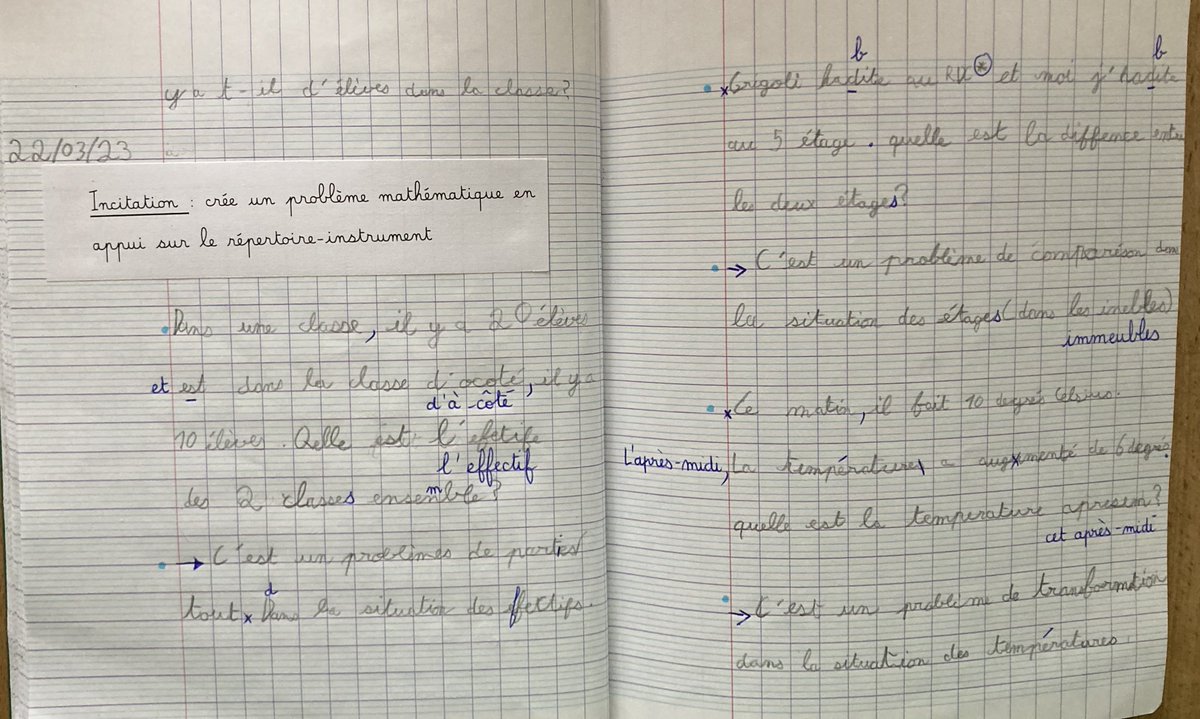 y a t-il d'élèves dans la classe?
22/03/23
Incitation : crée un problème mathématique en
appui sur le répertoire-instrument
Dans une classe, il y a 20 élèves
et est dans la classe d'acoté, il y a
d'à-côté
10 élèves. Qelle est l'efectife
l'effectif
des 2 classes ensemble?
m
→ C'est un problèmes de parties
d
tout x Dans la situation des effectifs.
b b
x Grigoli hadite au RDC * et moi j'hadite
au 5 étage. quelle est la diffence entre
les deux étages?
→ C'est un problème de comparéson dans
la situation des étages (dans les inebles)
immeubles
x Ce matin, il fait 10 degrés Celsius.
L'après-midi, La température a augmenté de 6 degrés.
quelle est la température apresem?
cet après-midi
→ C'est un problème de transformation
dans la situation des températures.